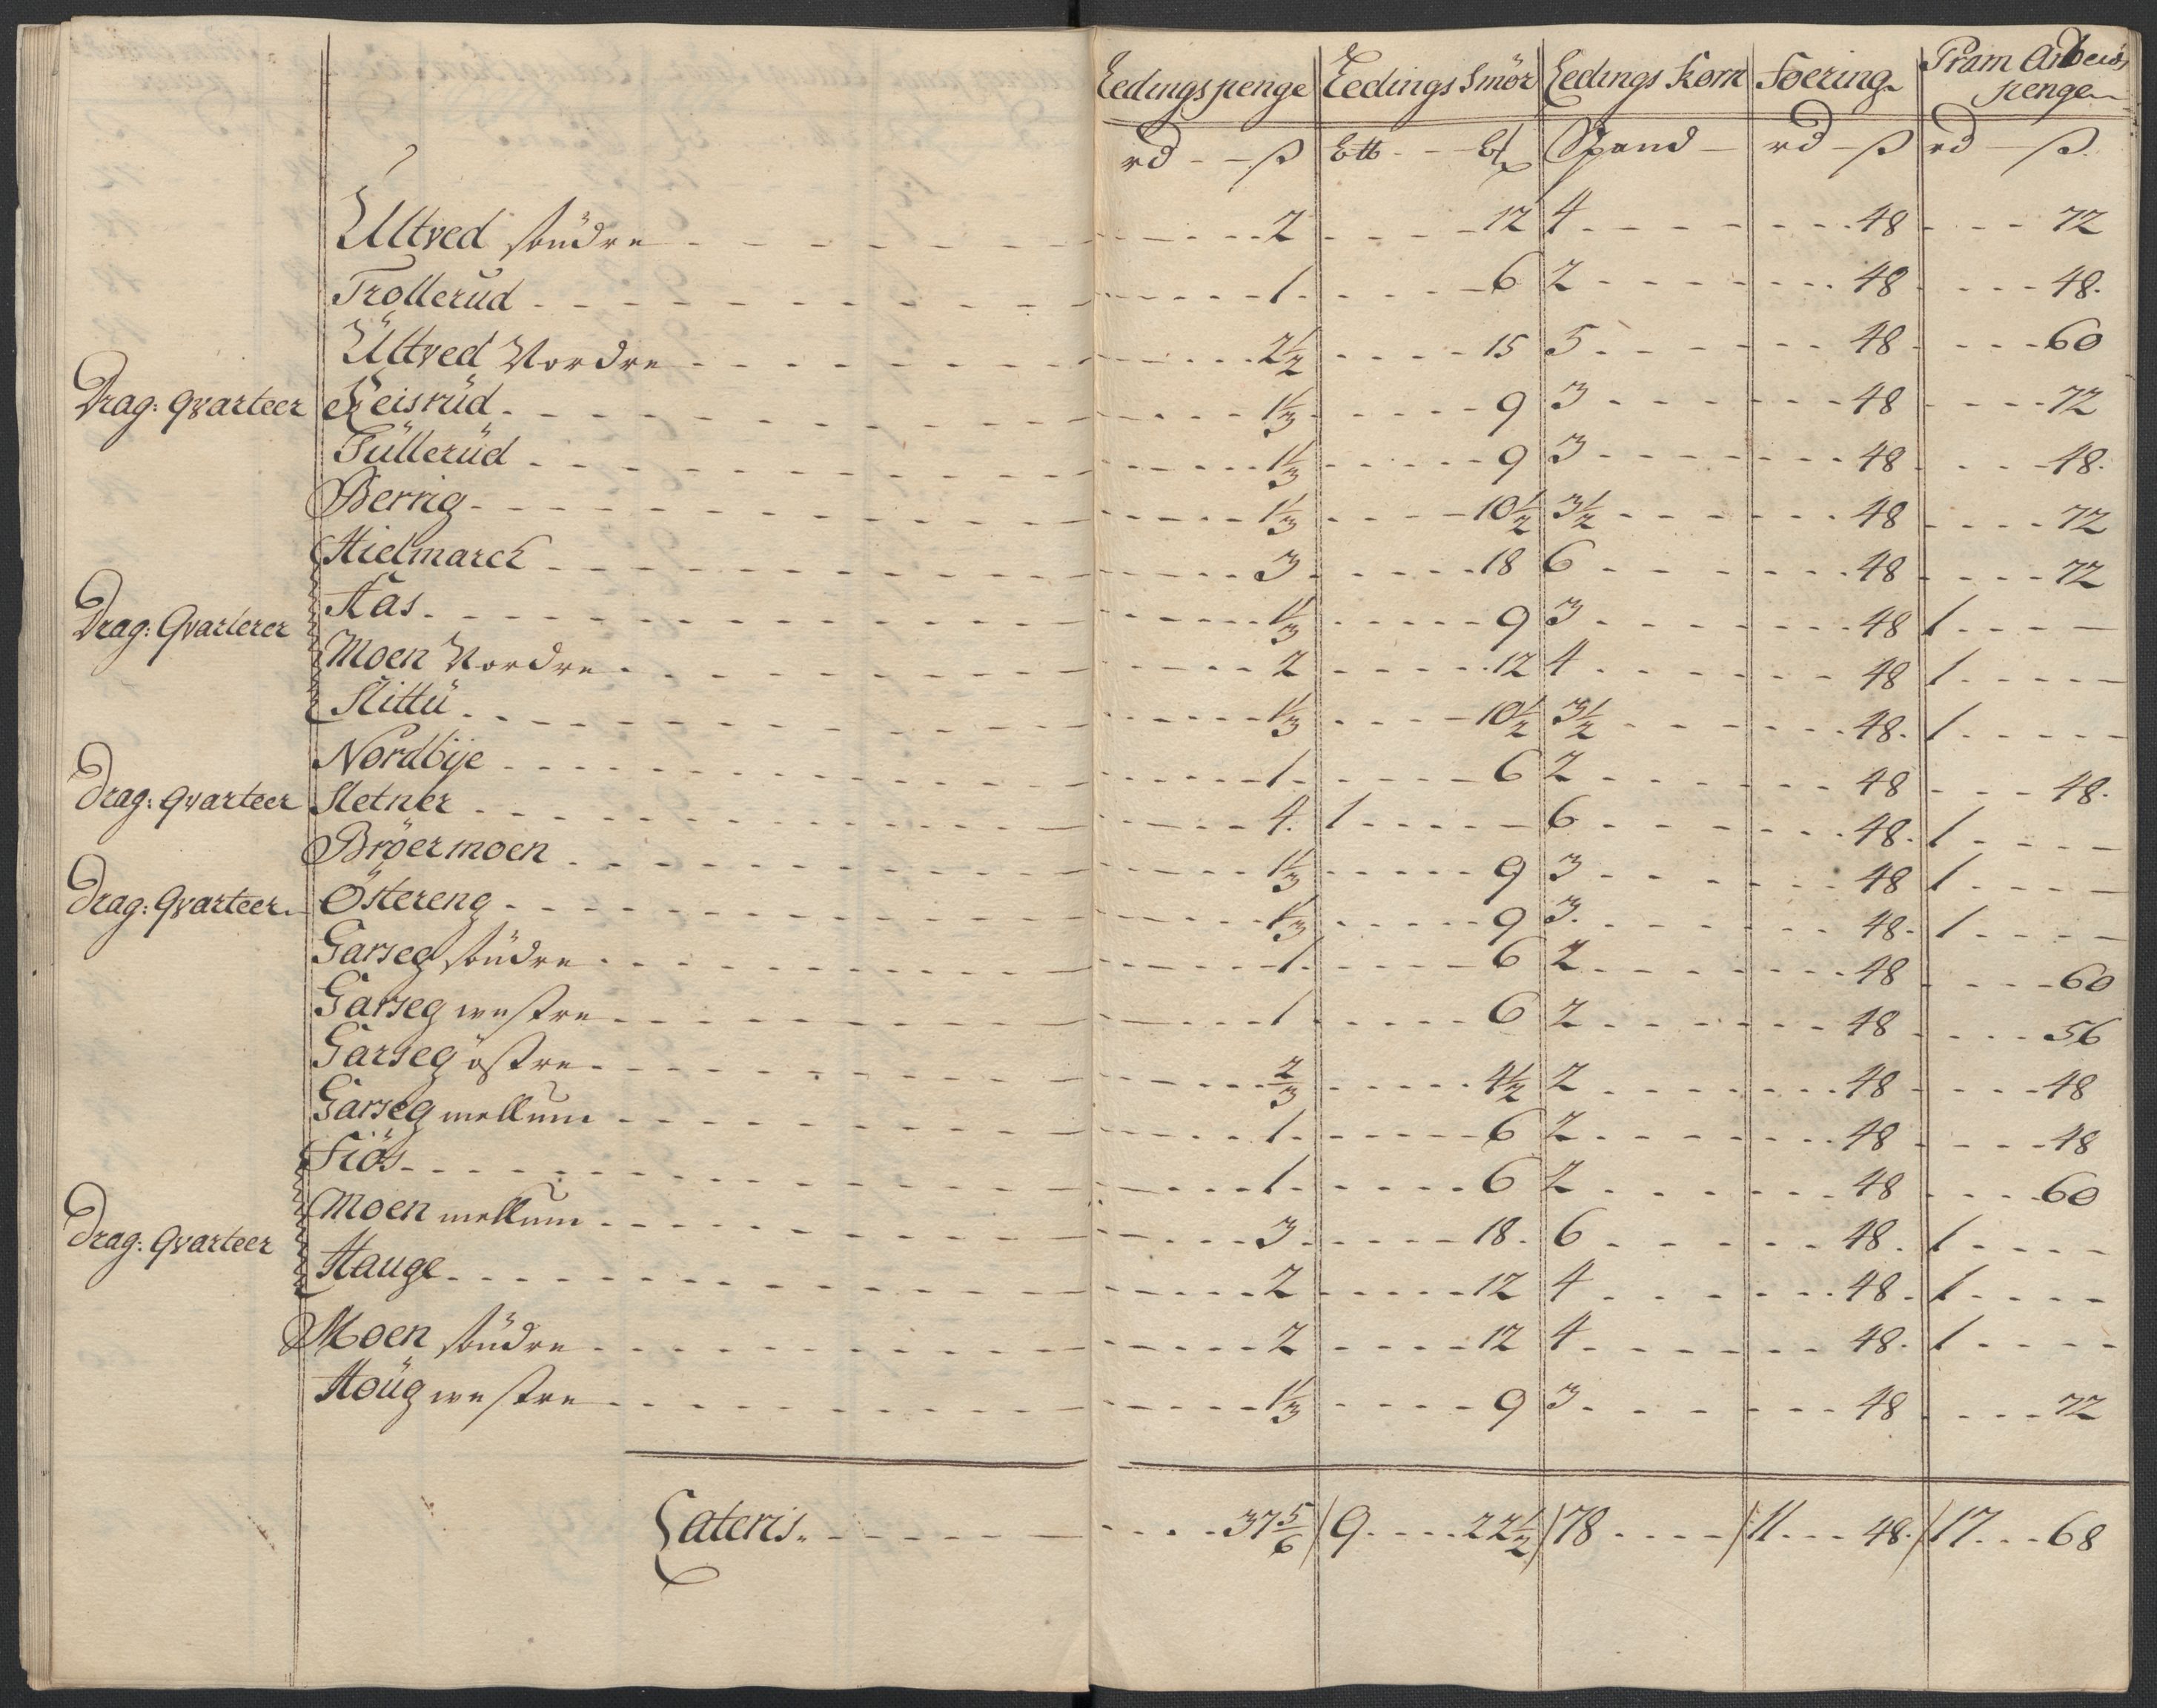 Ledings penge Ledings Smör Ledings Korn Foering Pram Arbeids penge
rd - - ß B℔ - - ℔ Spand - rd - ß rd - ß
Ultved söndre - - - 2 - - - 12 4 - - - 48 - - - 72
Trollerud - - - 1 - - - 6 2 - - - 48 - - - 48.
Ültved Nordre - - - 2½ - - - 15 5 - - - 48 - - - 60
Drag: qvarteer Leisrüd - - - 1⅓ - - - 9 3 - - - 48 - - - 72
Tüllerüd - - - 1⅓ - - - 9 3 - - - 48 - - - 48.
Berrig - - - 1⅓ - - - 10½ 3½ - - - 48 - - - 72
Hielmarck - - - 3 - - - 18 6 - - - 48 - - - 72
Drag: Qvarterer Aas - - - 1⅓ - - - 9 3 - - - 48 1 - - -
Moen Nordre - - - 2 - - - 12 4 - - - 48 1 - - -
Slittü - - - 1⅓ - - - 10½ 3½ - - - 48. 1 - - -
Nordbÿe - - - 1 - - - 6 2 - - - 48 - - - 48.
Drag: qvarteer Sletner - - - 4. 1 - - - 6 - - - 48. 1 - - -
Bröermoen - - - 1⅓ - - - 9 3 - - - 48 1 - - -
Drag: Qvarteer Östereng - - - 1⅓ - - - 9 3. - - - 48. 1 - - -
Garseg söndre - - - 1 - - - 6 2 - - - 48 - - - 60
Garseg westre - - - 1 - - - 6 2 - - - 48 - - - 56
Garseg östre - - - ⅔ - - - 4½ 2 - - - 48 - - - 48
Garseg mellum - - - 1 - - - 6 2 - - - 48 - - - 48
Fiös - - - 1 - - - 6 2 - - - 48 - - - 60
Drag: Qvarteer Moen mellum - - - 3 - - - 18. 6 - - - 48. 1 - - -
Hauge - - - 2 - - - 12 4 - - - 48. 1 - - -
Moen söndre - - - 2 - - - 12 4 - - - 48. 1 - - -
Höüg westre - - - 1⅓ - - - 9 3 - - - 48 - - - 72
Lateris - - - 37⅚ / 9 - - - 22½ / 78 - - - / 11 - - - 48. / 17 - - - 68